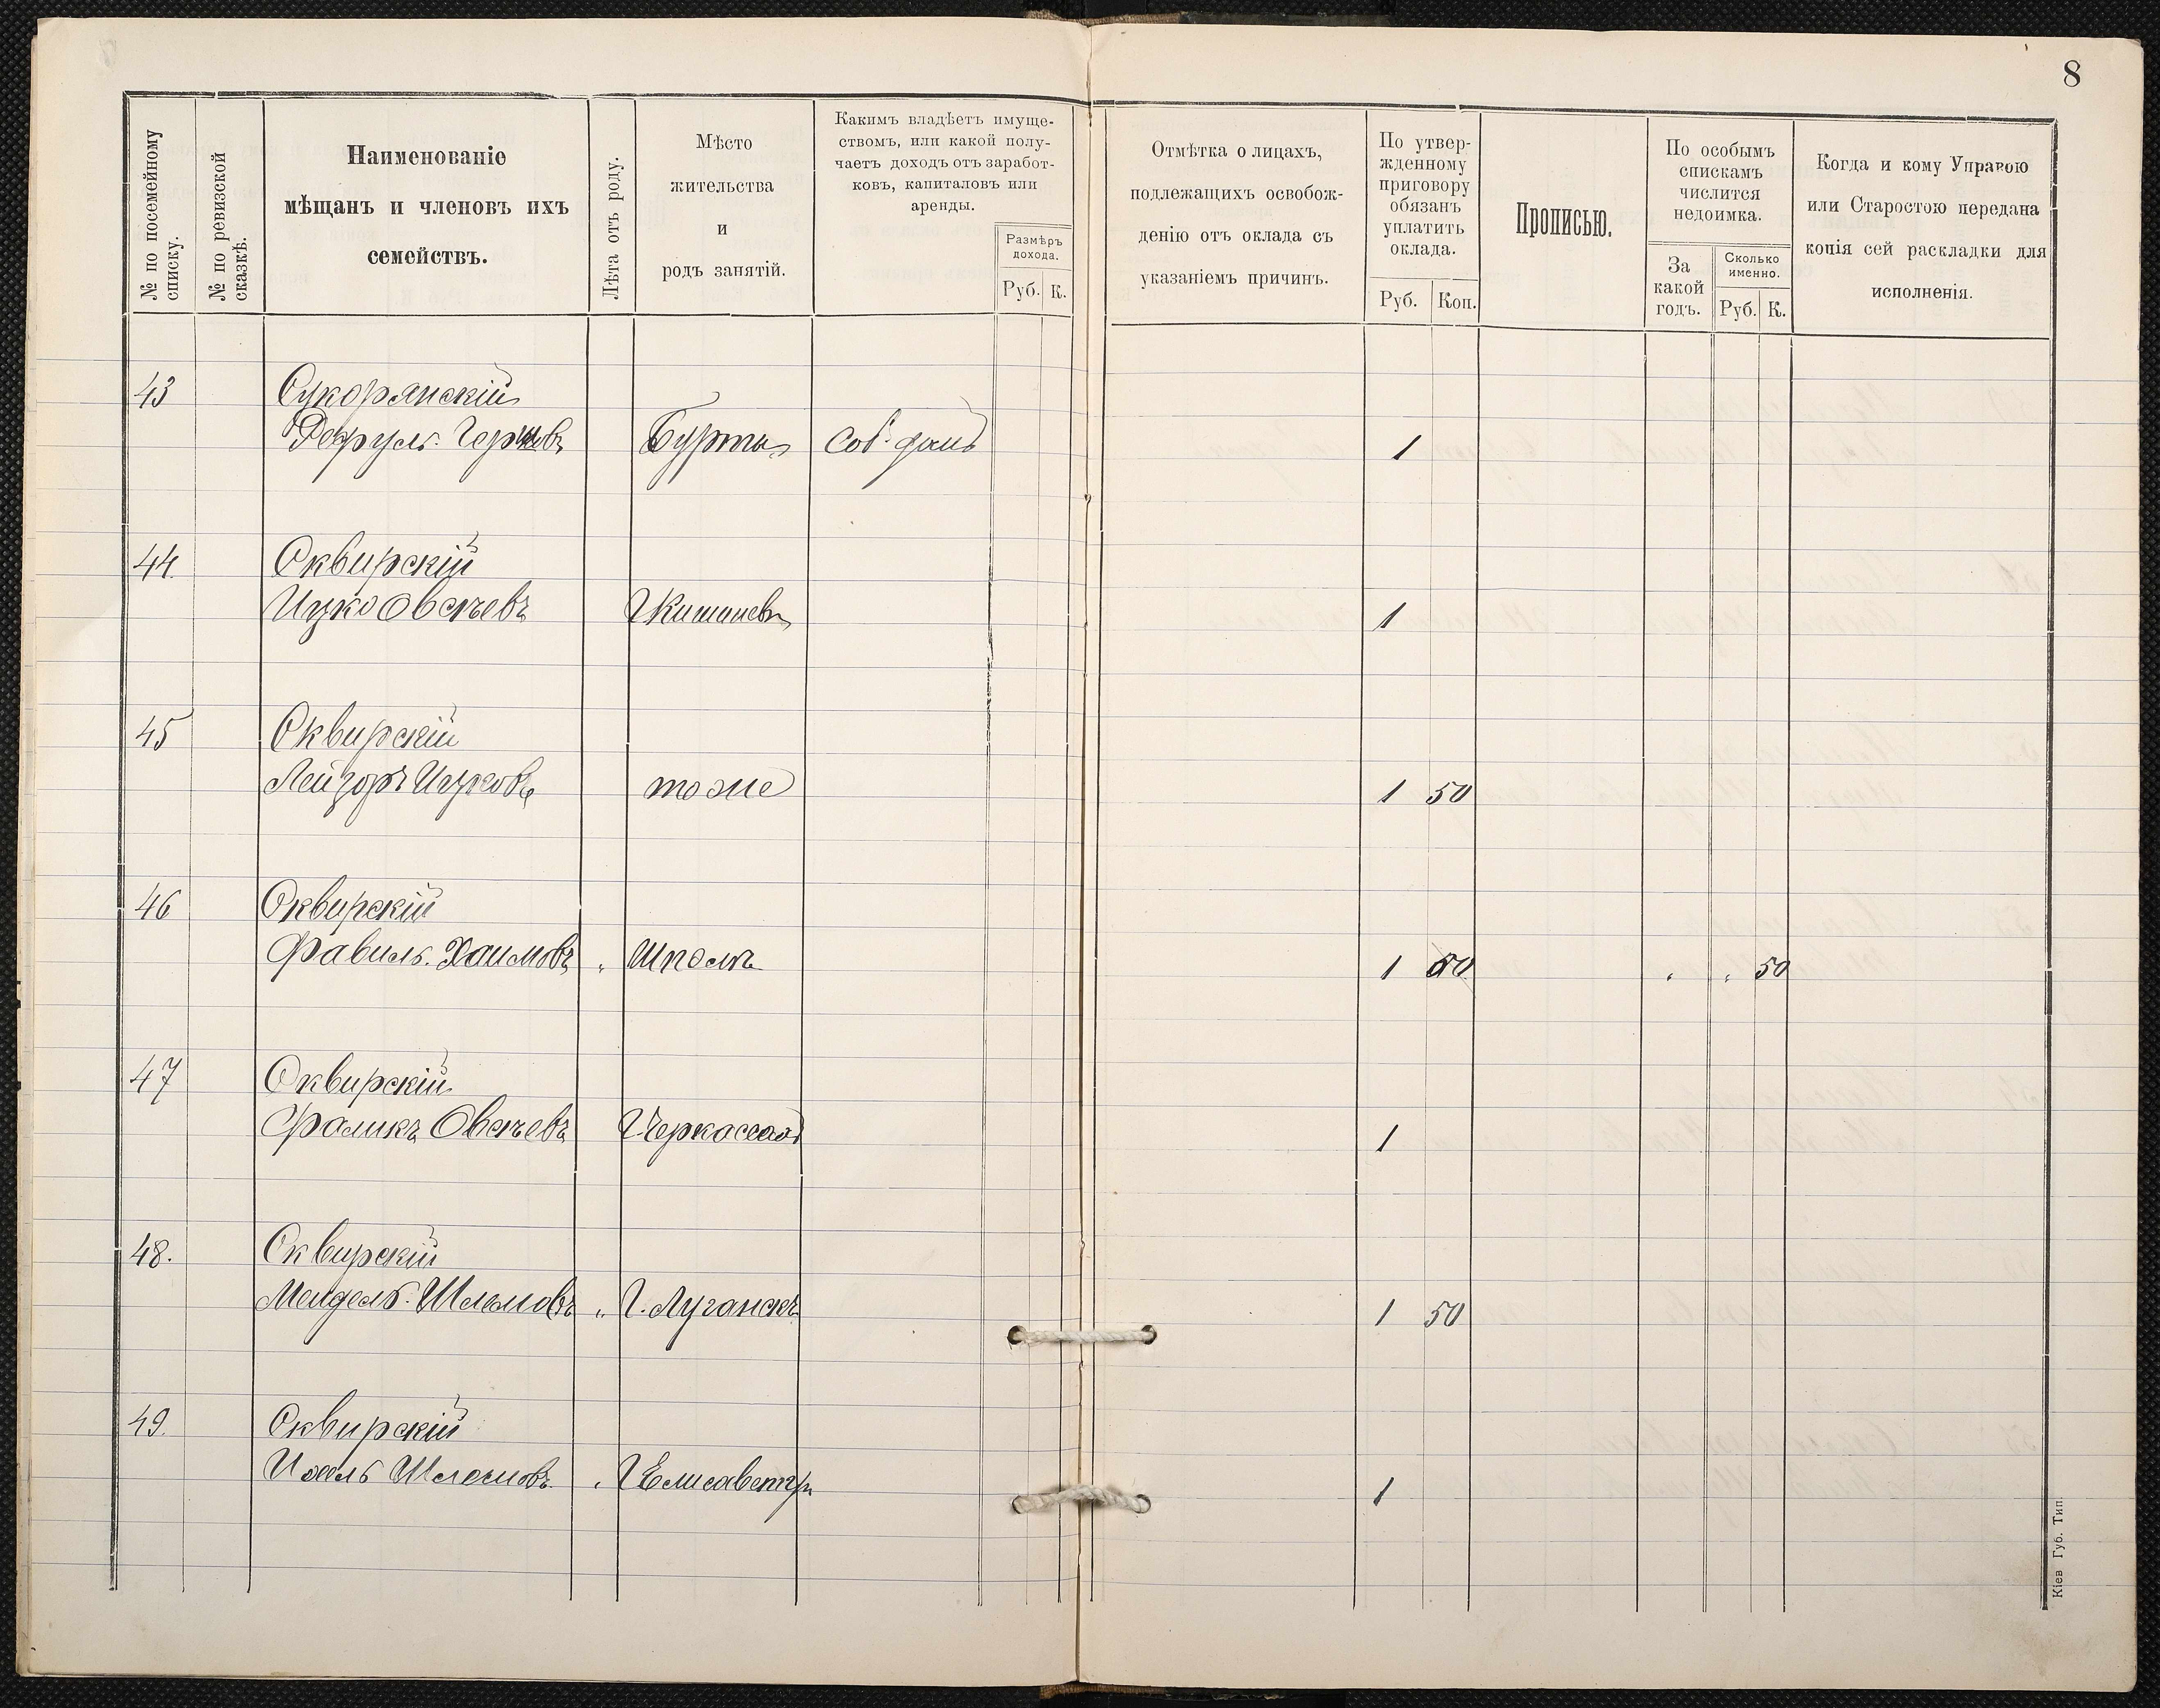 8
№ по посемейному списку.
№ по ревизской сказкѣ.
Наименованіе
мѣщанъ и членовъ ихъ
семействъ.
Лѣта отъ роду.
Мѣсто
жительства
и
родъ занятій.
Какимъ владѣетъ имуще-
ствомъ, или какой полу-
чаетъ доходъ отъ заработ-
ковъ, капиталовъ или
аренды.
Размѣръ
дохода.
Руб. К.
Отмѣтка о лицахъ,
подлежащихъ освобож-
денію отъ оклада съ
указаніемъ причинъ.
По утвер-
жденному
приговору
обязанъ
уплатить
оклада.
Руб. Коп.
Прописью.
По особымъ
спискамъ
числится
недоимка.
За
какой
годъ.
Сколько
именно.
Руб. К.
Когда и кому Управою
или Старостою передана
копія сей раскладки для
исполненія.
43 Сукорянскій
Герцковъ Бурты Соб. домъ 1
44. Сквирскій
Ицко Овсѣевъ Г Кишиневъ 1
45 Сквирскій
Лейзоръ Ицковъ тоже 1 50
46 Сквирскій
Фавиль Хаимовъ " Шпола 1 50 " " 50
47 Сквирскій
Фаликъ Овсѣевъ Г Черкассахъ 1
48. Сквирскій
Мендель Шлемовъ " Г. Луганскъ 1 50
49. Сквирскій
Шлемовъ " Г Елисаветгр 1
Кіев Губ. Тип.